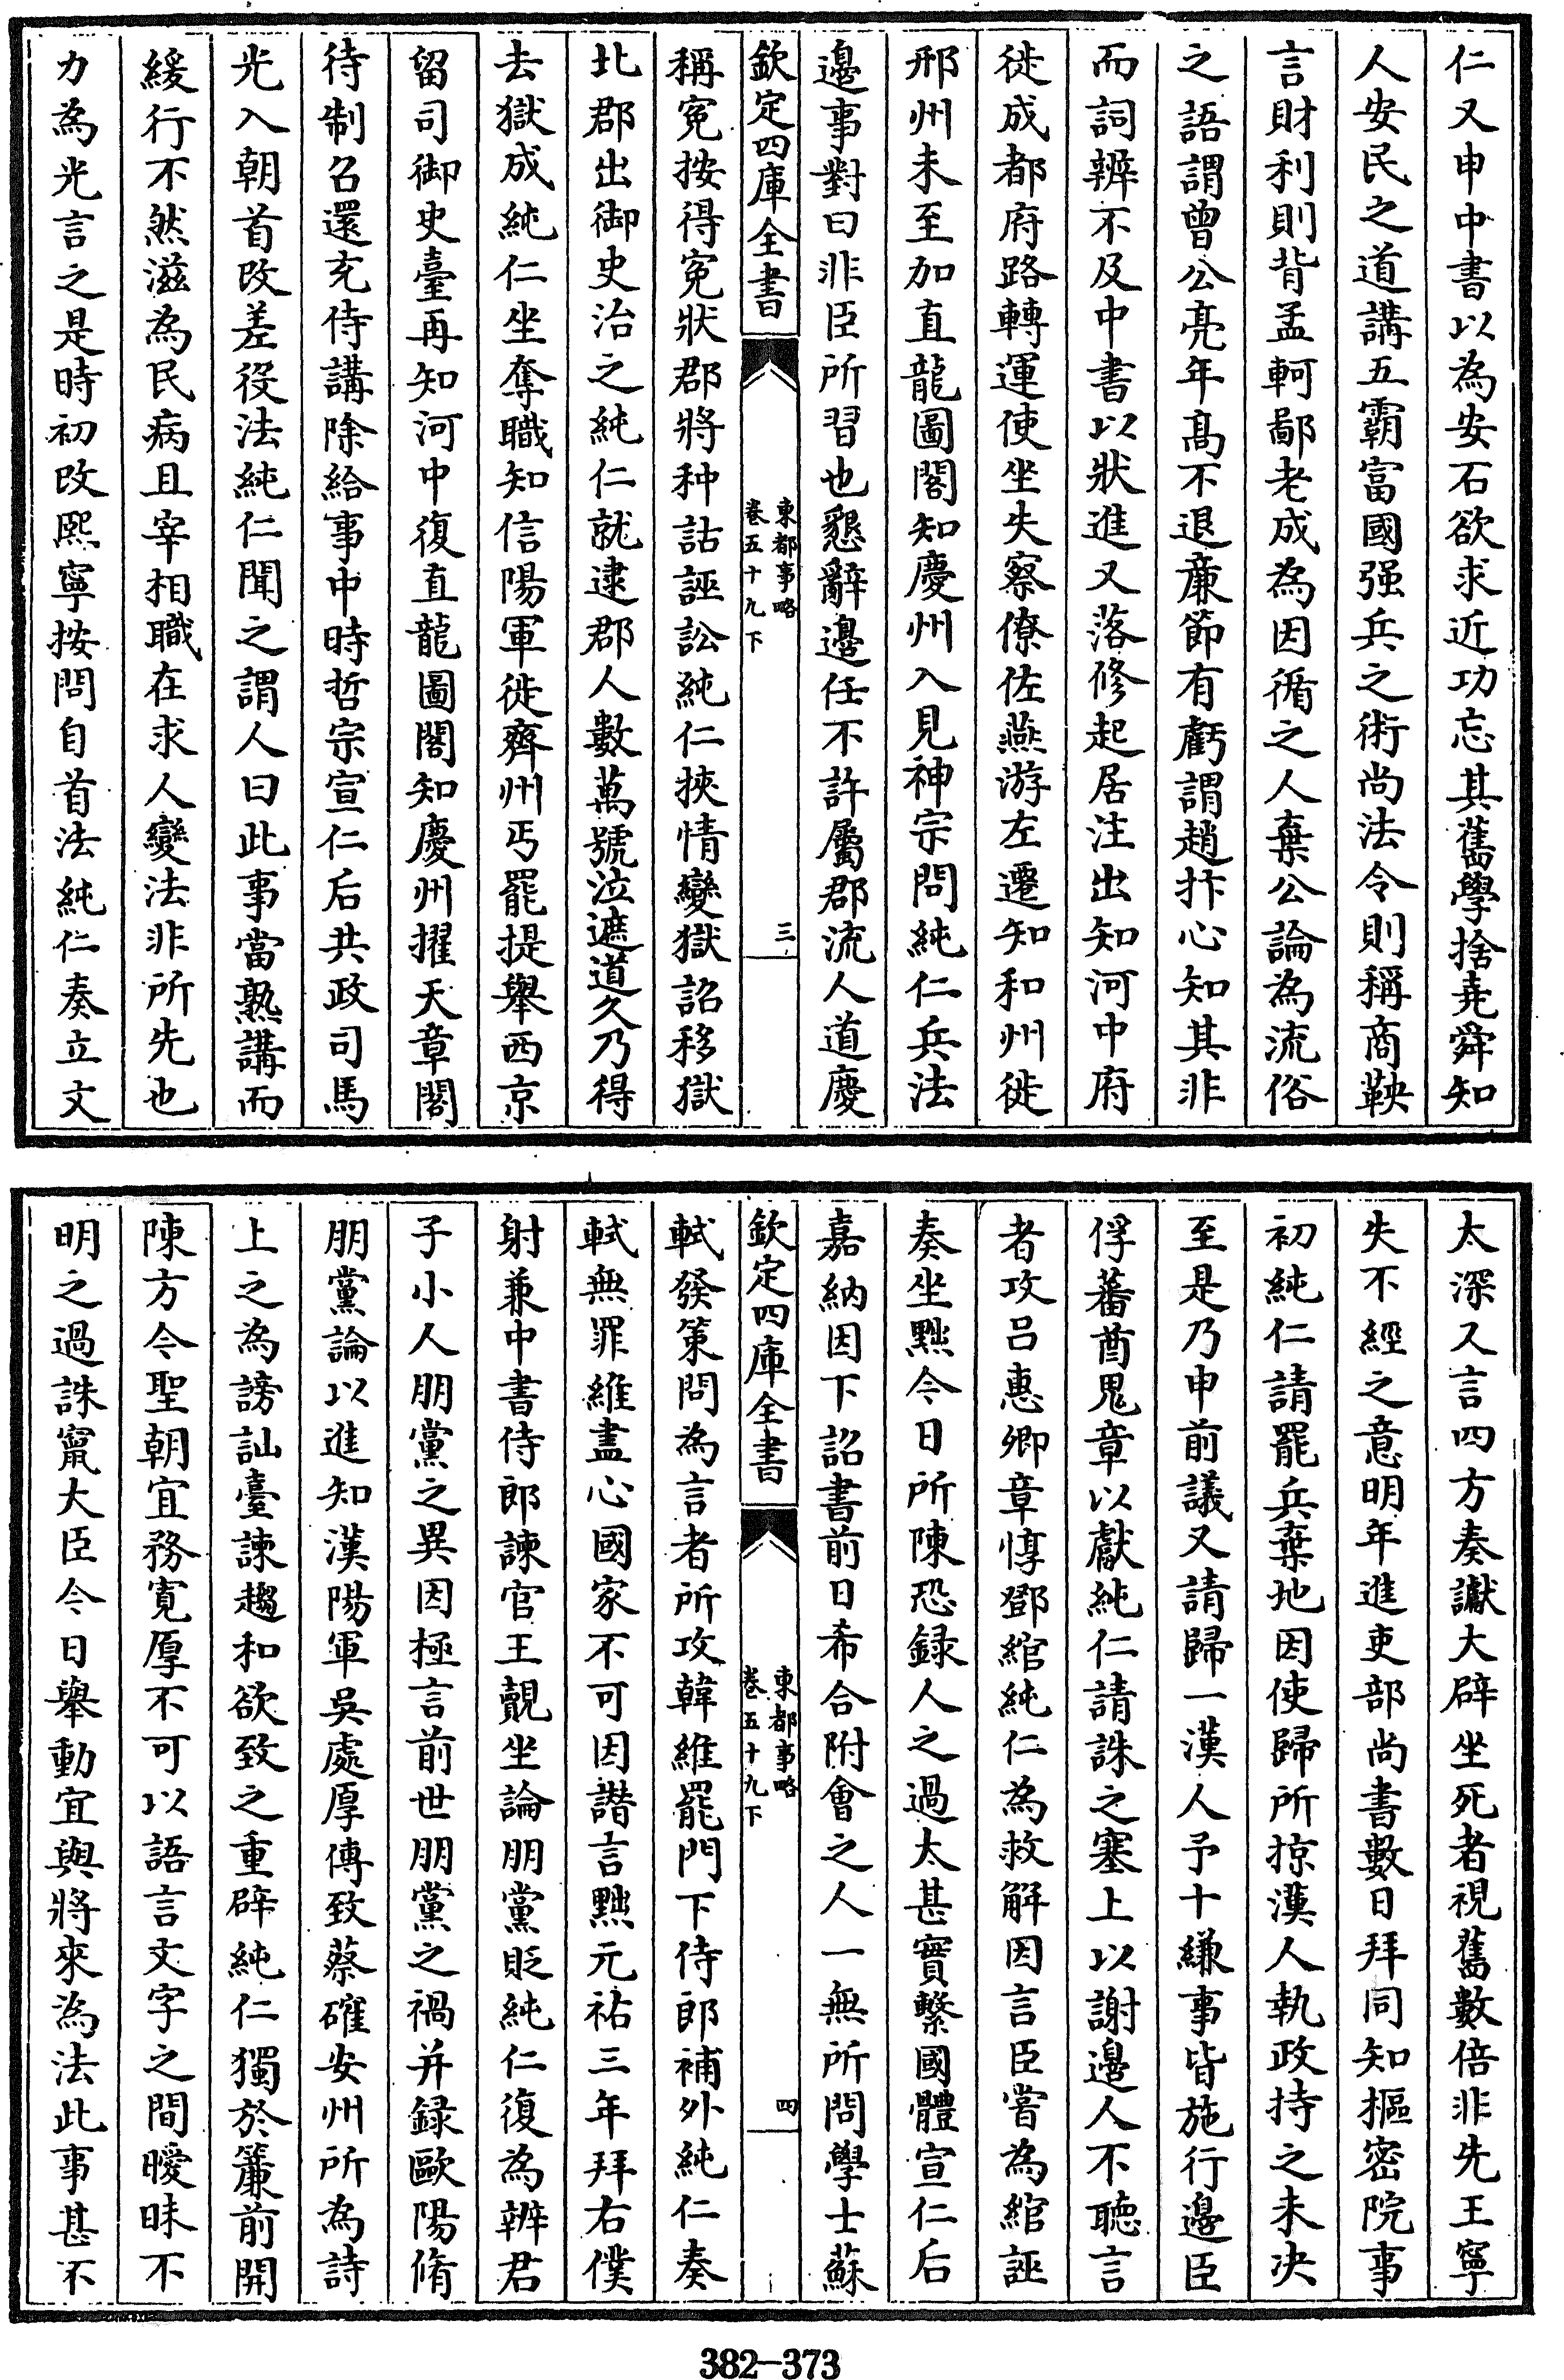 仁又申中書以為安石欲求近功忘其舊學捨堯舜知
人安民之道講五霸富國强兵之術尚法令則稱商鞅
言財利則背孟軻鄙老成為因循之人棄公論為流俗
之語謂曾公亮年髙不退亷節有虧謂趙抃心知其非
而詞辨不及中書以狀進又落修起居注出知河中府
徙成都府路轉運使坐失察僚佐燕游左遷知和州徙
邢州未至加直龍圖閣知慶州入見神宗問純仁兵法
邉事對曰非臣所習也懇辭邉任不許屬郡流人道慶
欽定四庫全書
東都事略
卷五十九下
三
稱寃按得寃狀郡將种詁誣訟純仁挾情變獄詔移獄
北郡出御史治之純仁就逮郡人數萬號泣遮道久乃得
去獄成純仁坐奪職知信陽軍徙齊州丐罷提舉西京
留司御史臺再知河中復直龍圖閣知慶州擢天章閣
待制召還充侍講除給事中時哲宗宣仁后共政司馬
光入朝首改差役法純仁聞之謂人曰此事當熟講而
緩行不然滋為民病且宰相職在求人變法非所先也
力為光言之是時初改熙寧按問自首法純仁奏立文
太深又言四方奏讞大辟坐死者視舊數倍非先王寧
失不經之意明年進吏部尚書數日拜同知樞密院事
初純仁請罷兵棄地因使歸所掠漢人執政持之未决
至是乃申前議又請歸一漢人予十縑事皆施行邉臣
俘蕃酋鬼章以獻純仁請誅之塞上以謝邉人不聽言
者攻吕惠卿章惇鄧綰純仁為救解因言臣嘗為綰誣
奏坐黜今日所陳恐録人之過太甚實繫國體宣仁后
嘉納因下詔書前日希合附會之人一無所問學士蘇
欽定四庫全書
東都事略
卷五十九下
四
軾發策問為言者所攻韓維罷門下侍郎補外純仁奏
軾無罪維盡心國家不可因譖言黜元祐三年拜右僕
射兼中書侍郎諫官王覿坐論朋黨貶純仁復為辨君
子小人朋黨之異因極言前世朋黨之禍并録歐陽脩
朋黨論以進知漢陽軍吳處厚傳致蔡確安州所為詩
上之為謗訕臺諫趨和欲致之重辟純仁獨於簾前開
陳方今聖朝宜務寛厚不可以語言文字之間曖昧不
明之過誅竄大臣今日舉動宜與將來為法此事甚不
382—373